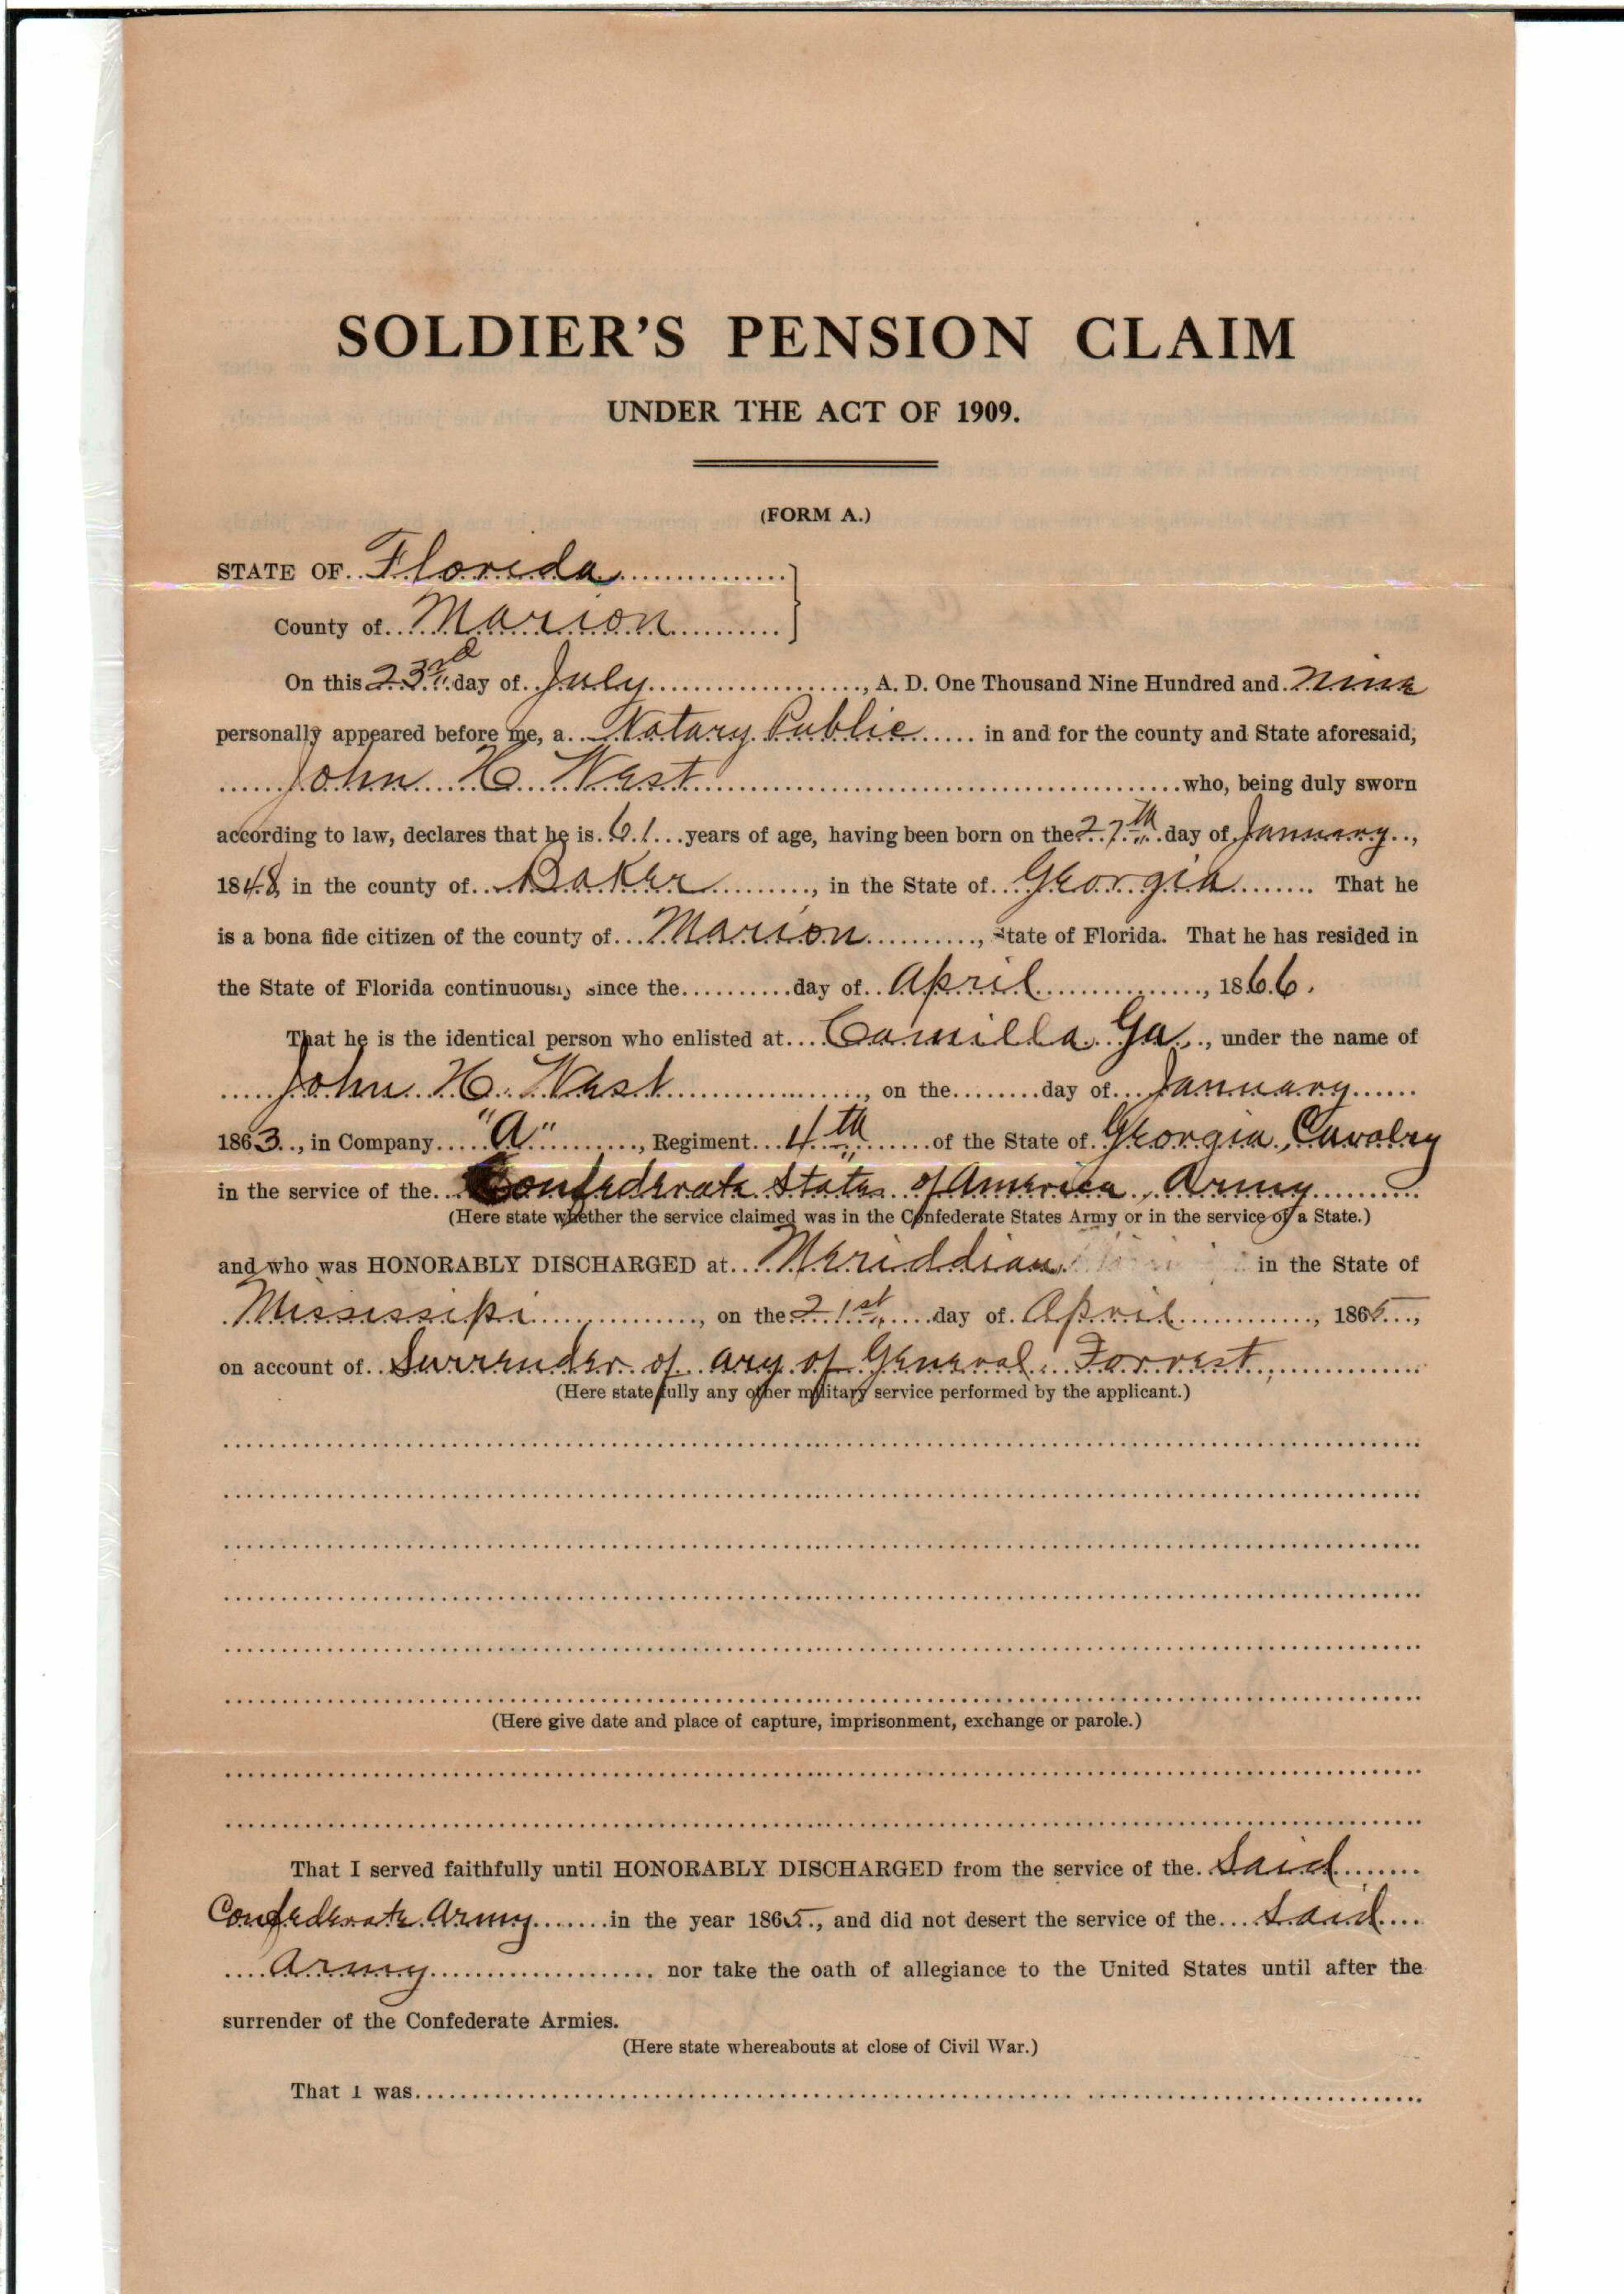 SOLDIER'S PENSION CLAIM
UNDER THE ACT OF 1909.
(FORM A.)
STATE OF Florida
County of Marion
On this 23rd day of July, A. D. One Thousand Nine Hundred and Nine
personally appeared before me, a Notary Public in and for the county and State aforesaid,
John H. West who, being duly sworn
according to law, declares that he is 61 years of age, having been born on the 27th day of January,
1848, in the county of Baker, in the State of Georgia. That he
is a bona fide citizen of the county of Marion, State of Florida. That he has resided in
the State of Florida continuously since the day of April, 1866.
That he is the identical person who enlisted at Camilla Ga., under the name of
John H. West, on the day of January
1863, in Company "A", Regiment 4th of the State of Georgia, Cavalry
in the service of the Confederate States of America, Army
(Here state whether the service claimed was in the Confederate States Army or in the service of a State.)
and who was HONORABLY DISCHARGED at Meriddian in the State of
Mississipi, on the 21st day of April, 1865,
on account of Surrender of ary of General Forrest,
(Here state fully any other military service performed by the applicant.)
(Here give date and place of capture, imprisonment, exchange or parole.)
That I served faithfully until HONORABLY DISCHARGED from the service of the Said
Confederate Army in the year 1865, and did not desert the service of the Said
Army nor take the oath of allegiance to the United States until after the
surrender of the Confederate Armies.
(Here state whereabouts at close of Civil War.)
That I was